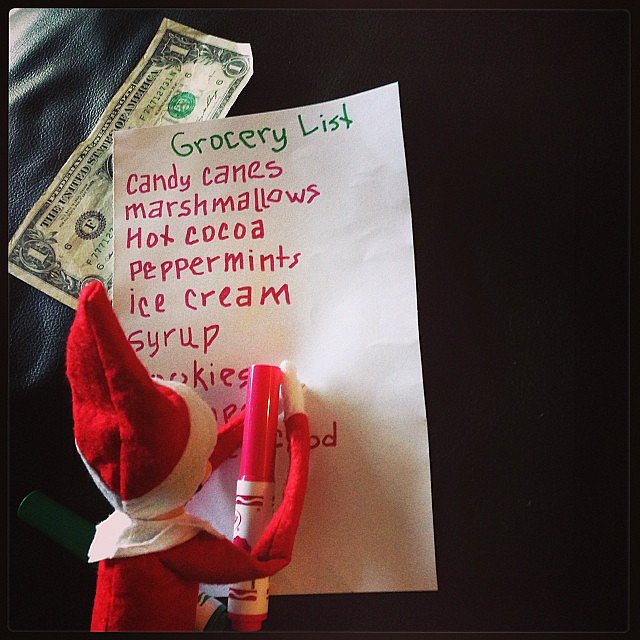 GROCERY LIST
candy canes
marshmallows
Hot cocoa
PEPPERMINTS
ice cream
syrup
THE UNITED STATES OF AMERICA
1
1